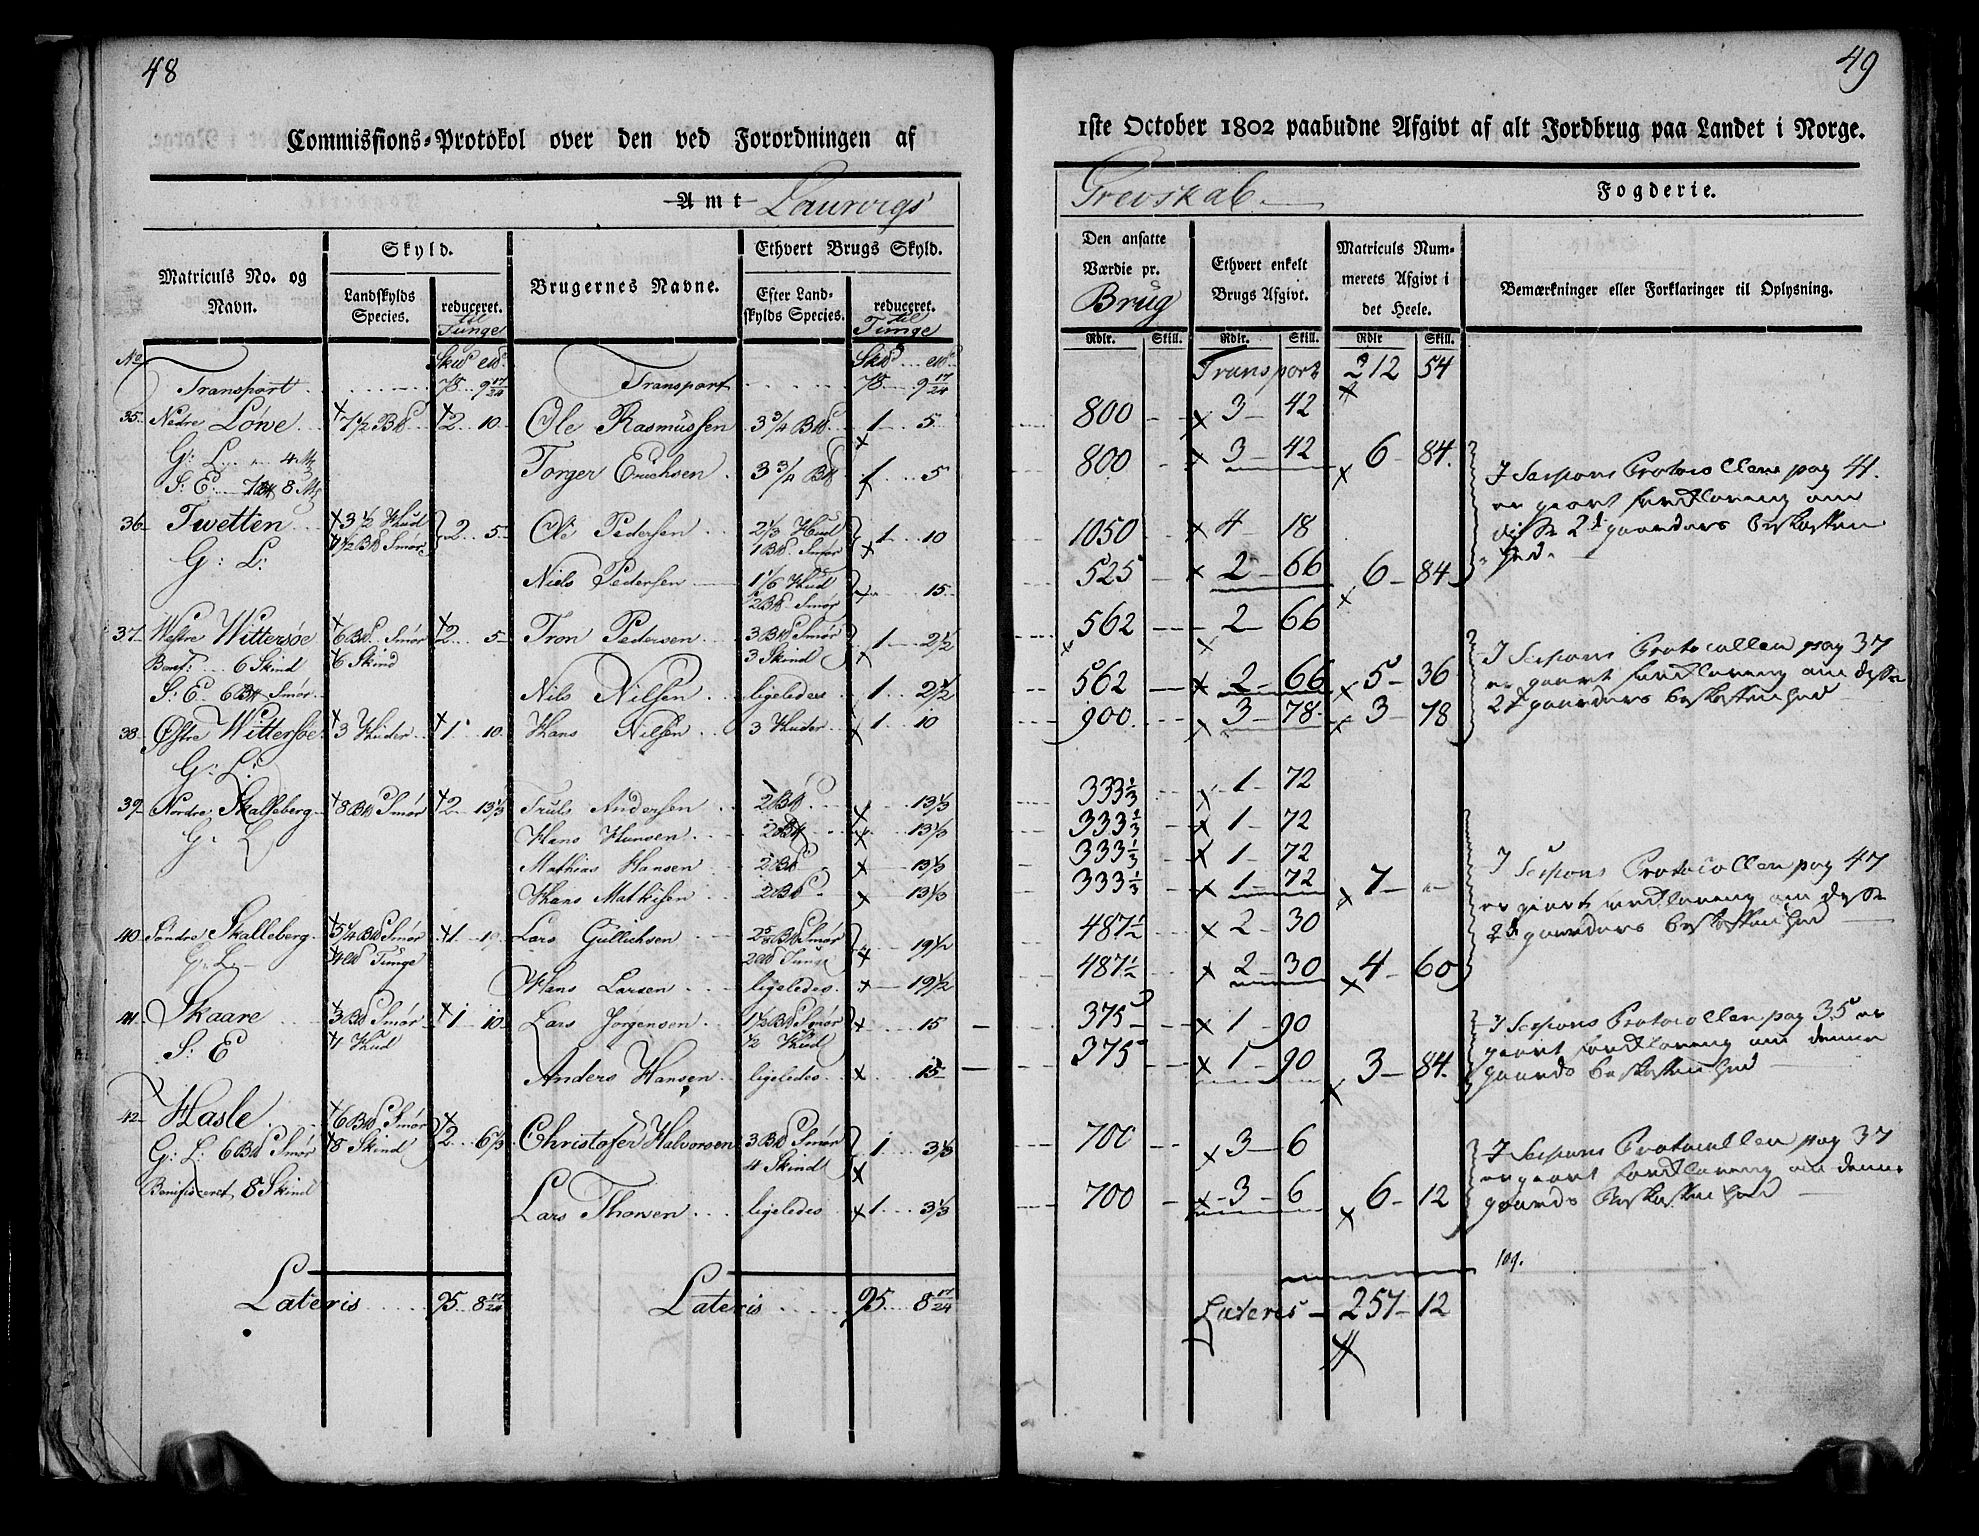 48
Commissions-Protokol over den ved Forordningen af
Amt Laurvigs
Matriculs No. og Navn.
Skyld.
Landskylds Species.
reduceret. til Tunge
Brugernes Navne.
Ethvert Brugs Skyld.
Efter Landskylds Species.
reduceret. til Tunge
No
Transport 78 9 17/24 Transport 78 9 17/24
35 Nedre Löwe 7 1/2 Bd 2 10 Ole Rasmussen 3 3/4 Bd 1 5
G: L: 4
S: E 8 Torger Erichsen 3 3/4 Bd 1 5
36 Twetten 3 1/2 Hud 2 5 Ole Pedersen 2 1/3 Hud 1 10
1 1/2 Bd Smør 1 Bd Smør
G: L:
Niels Pedersen 1 1/6 Hud 15
1/2 Bd Smør
37 Westre Wittersøe 6 Bd Smør 2 5 Tron Pedersen 3 Bd Smør 1 2 1/2
6 Skind 6 Skind 3 Skind
S: E 6 Bd Smør Nils Nilsen ligeledes 1 2 1/2
38 Østre Wittersøe 3 Huder 1 10 Hans Nilsen 3 Huder 1 10
G: L:
39 Nordre Skalleberg 8 Bd Smør 2 13 1/3 Truls Andersen 2 Bd 13 1/3
G: L Hans Hansen 2 Bd 13 1/3
Mathias Hansen 2 Bd 13 1/3
Hans Mathisen 2 Bd 13 1/3
40 Søndre Skalleberg 5 1/4 Bd Smør 1 Lars Gullichsen 2 5/8 Bd Smør 19 1/2
G: L Tunge Tunge
Hans Larsen ligeledes 19 1/2
41 Skaare 3 Bd Smør 1 10 Lars Jørgensen 1 1/2 Bd Smør 15
S: E 1 Hud 1/2 Hud
Anders Hansen ligeledes 15
42 Hasle 6 Bd Smør 2 6 2/3 Christofer Halvorsen 3 Bd Smør 1 3 1/3
G: L: 6 Bd Smør 8 Skind 4 Skind
Benificeret 8 Skind
Lars Thorsen ligeledes 1 3 1/3
Lateris 95 8 17/24 Lateris 95 8 17/24
49
1ste October 1802 paabudne Afgivt af alt Jordbrug paa Landet i Norge.
Grevskab Fogderie.
Den ansatte Værdie pr. Brug
Ethvert enkelt Brugs Afgivt.
Matriculs Nummerets Afgivt i det Heele.
Bemærkninger eller Forklaringer til Oplysning.
Rdlr. Skill. Rdlr. Skill. Rdlr Skill.
Transport 212 54
800 3 42
800 3 42 6 84
I Sessions Protocollens pag 41.
er giort forklaring om
disse 2de gaarders beskaffen
hed
1050 4 18
525 2 66 6 84
562 2 66
562 2 66 5 36
900 3 78 3 78
I Sessions Protocollen pag 37
er giort forklaring om disse
2de gaarders beskaffenhed
333 1/3 1 72
333 1/3 1 72
333 1/3 1 72
333 1/3 1 72 7
487 1/2 2 30
487 1/2 2 30 4 60
I Sessions Protocollen pag 47
er giort forklaring om disse
2de gaarders beskaffenhed
375 1 90
375 1 90 3 84
I Sessions Protocollen pag 35 er
giort forklaring om denne
gaards beskaffenhed
700 3 6
700 3 6 6 12
I Sessions Protocollen pag 37
er giort forklaring om denne
gaards beskaffenhed
109.
Lateris 257 12